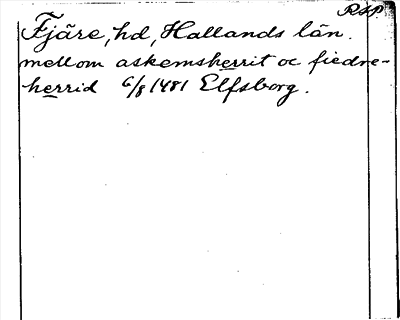 RAP.
Fjäre, hd, Hallands län.
mellom askemsherrit oc fiedre-
herrid 6/8 1481 Elfsborg.